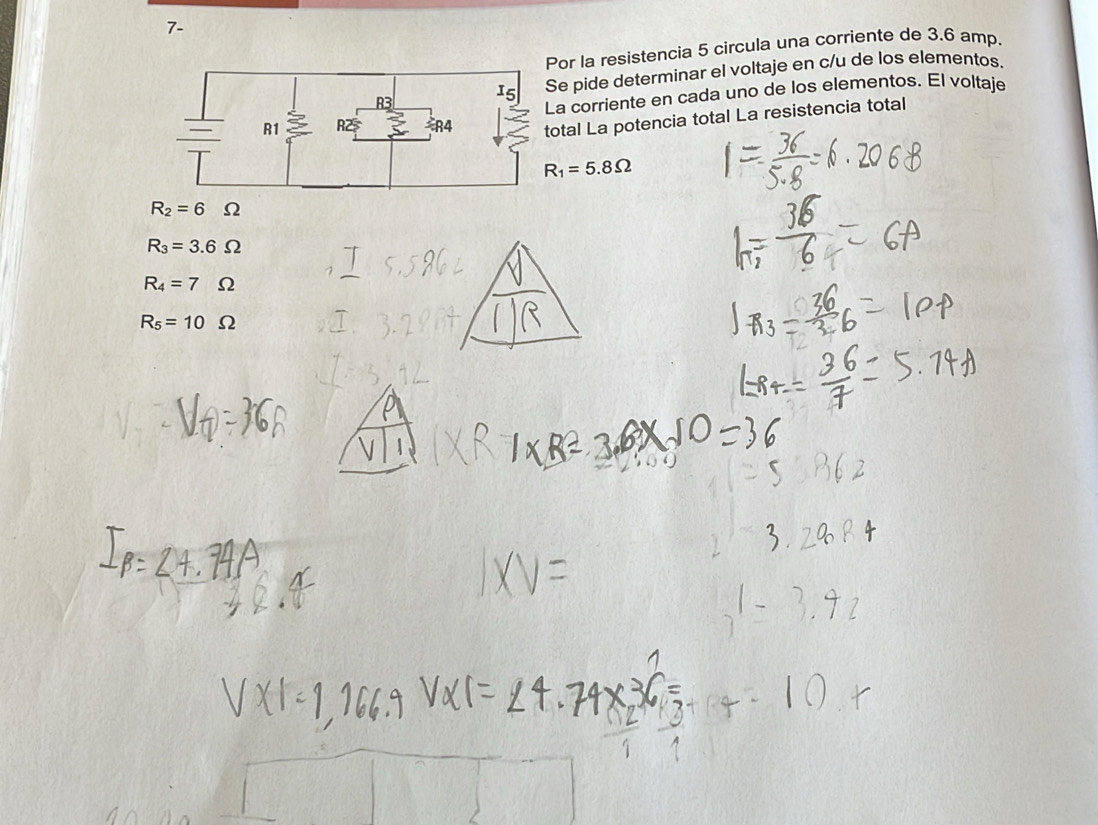 7-
Por la resistencia 5 circula una corriente de 3.6 amp.
Se pide determinar el voltaje en c/u de los elementos.
La corriente en cada uno de los elementos. El voltaje
total La potencia total La resistencia total
R1
R2
R3
R4
I5
R₁ = 5.8Ω
I = 36/5.8 = 6.2068
R₂ = 6 Ω
R₃ = 3.6 Ω
R₄ = 7 Ω
R₅ = 10 Ω
I 5.5862
I 3.28
V
I R
36/6 = 6A
I R3 = 36/3.6 = 10A
I R4 = 36/7 = 5.14A
VT = 36
P
V I
I X R
I X R = 3.6 X 10 = 36
I = 5.5862
IP = 24.74A
I X V =
3.2984
I = 3.42
V X I = 1,166.9
V X I = 24.74 X 36 =